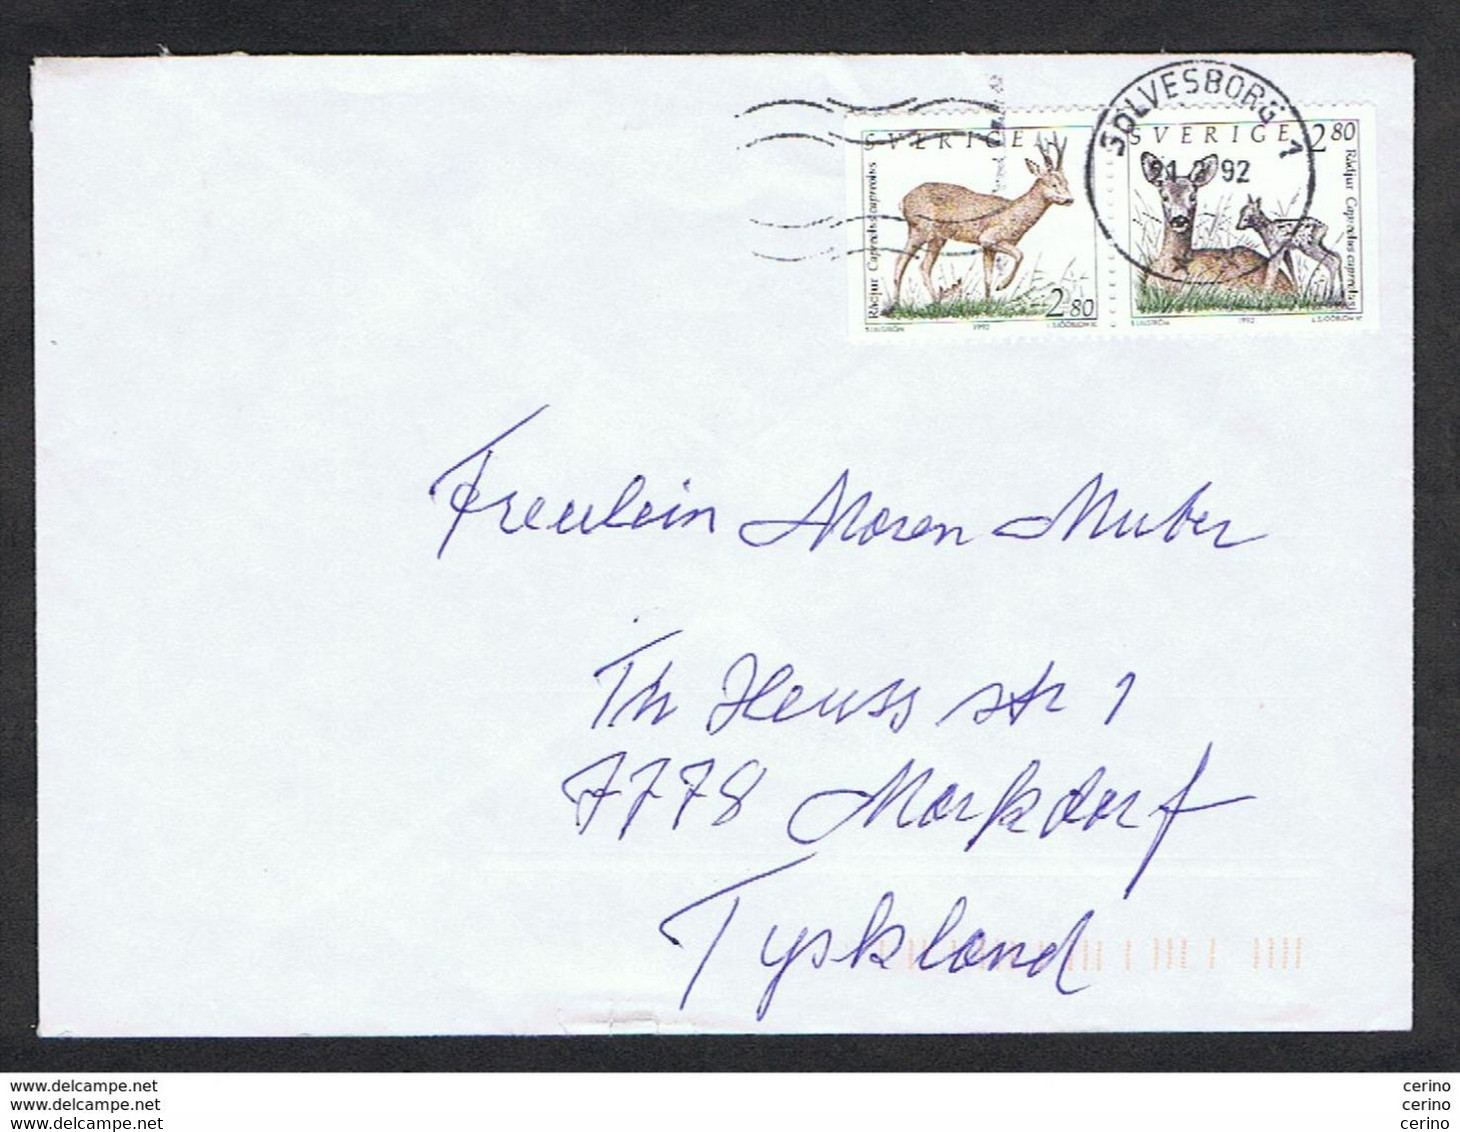 SÖLVESBORG 1
92
SVERIGE
Rådjur Capreolus capreolus
2.80
1992
SVERIGE 2 80
Rådjur Capreolus capreolus
1992
Freulein Maren Muber
Th Heuss str 1
7778 Markdorf
Tyskland
www.delcampe.net
www.delcampe.net
www.delcampe.net
cerino
cerino
cerino